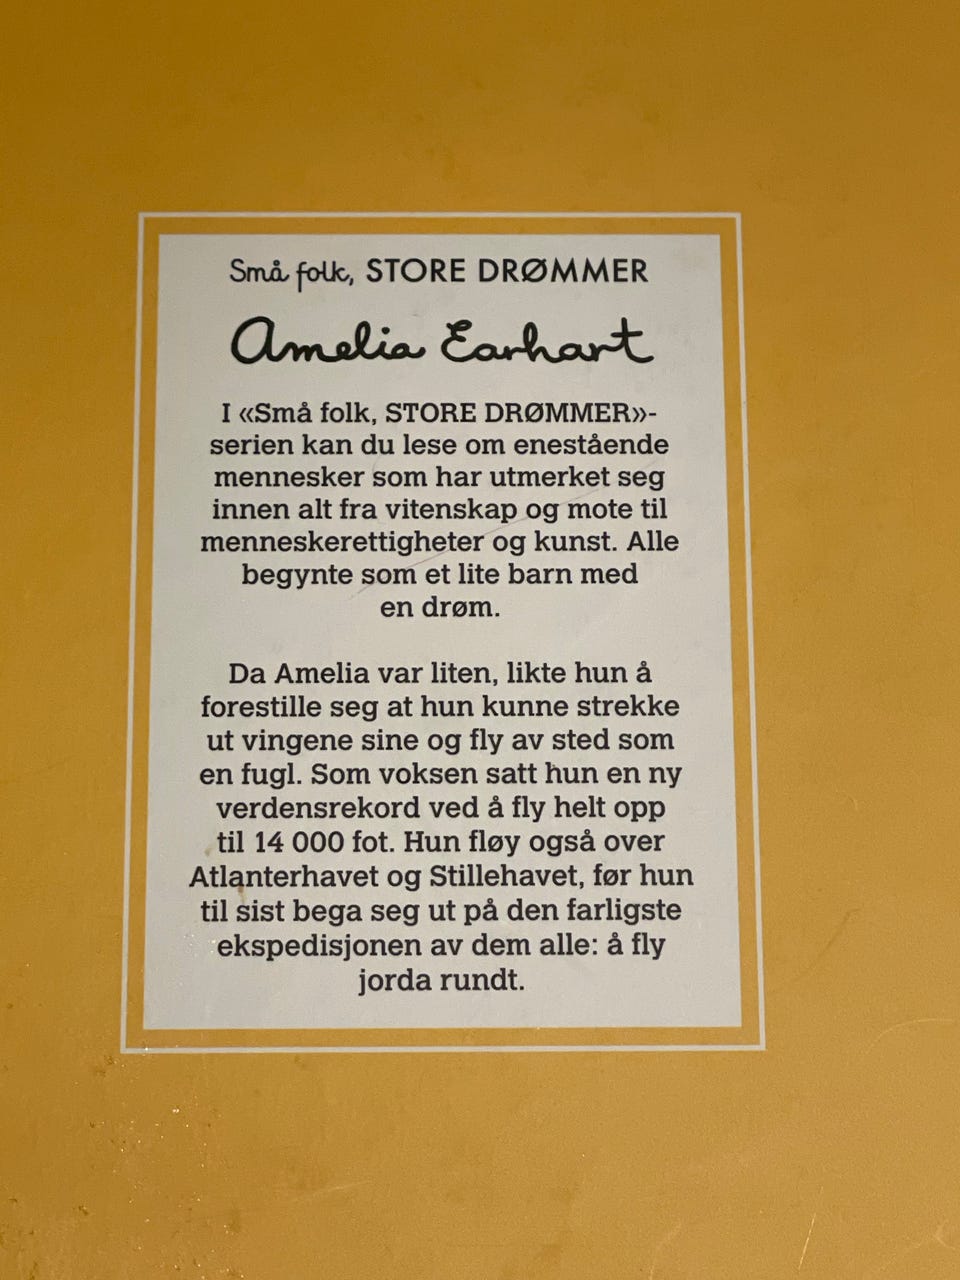 Små folk, STORE DRØMMER
Amelia Earhart
I «Små folk, STORE DRØMMER»-
serien kan du lese om enestående
mennesker som har utmerket seg
innen alt fra vitenskap og mote til
menneskerettigheter og kunst. Alle
begynte som et lite barn med
en drøm.
Da Amelia var liten, likte hun å
forestille seg at hun kunne strekke
ut vingene sine og fly av sted som
en fugl. Som voksen satt hun en ny
verdensrekord ved å fly helt opp
til 14 000 fot. Hun fløy også over
Atlanterhavet og Stillehavet, før hun
til sist bega seg ut på den farligste
ekspedisjonen av dem alle: å fly
jorda rundt.